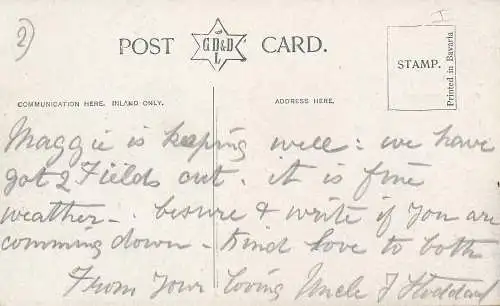 2)
I
POST G.D.&D. L CARD.
STAMP.
Printed in Bavaria
COMMUNICATION HERE. INLAND ONLY.
ADDRESS HERE.
Maggie is keeping well: we have
got 2 Fields out. it is fine
weather -. besure & write if you are
comming down - Kind love to both
From Your loving Uncle J Stoddart